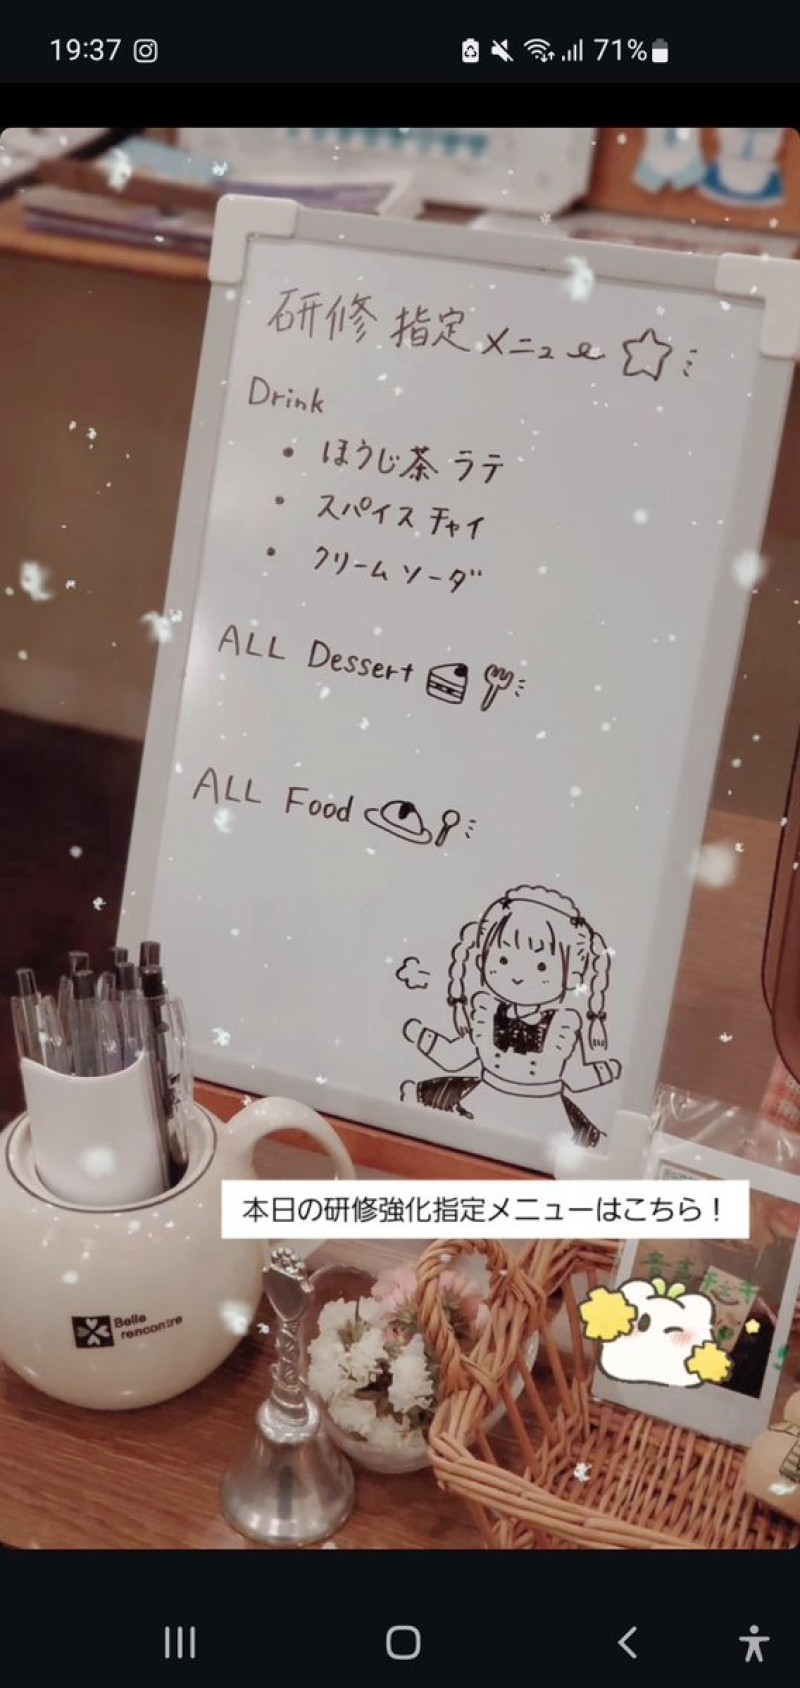 19:37
71%
研修 指定 メニュー
Drink
• ほうじ茶 ラテ
• スパイス チャイ
• クリーム ソーダ
ALL Dessert
ALL Food
本日の研修強化指定メニューはこちら！
Belle
rencontre